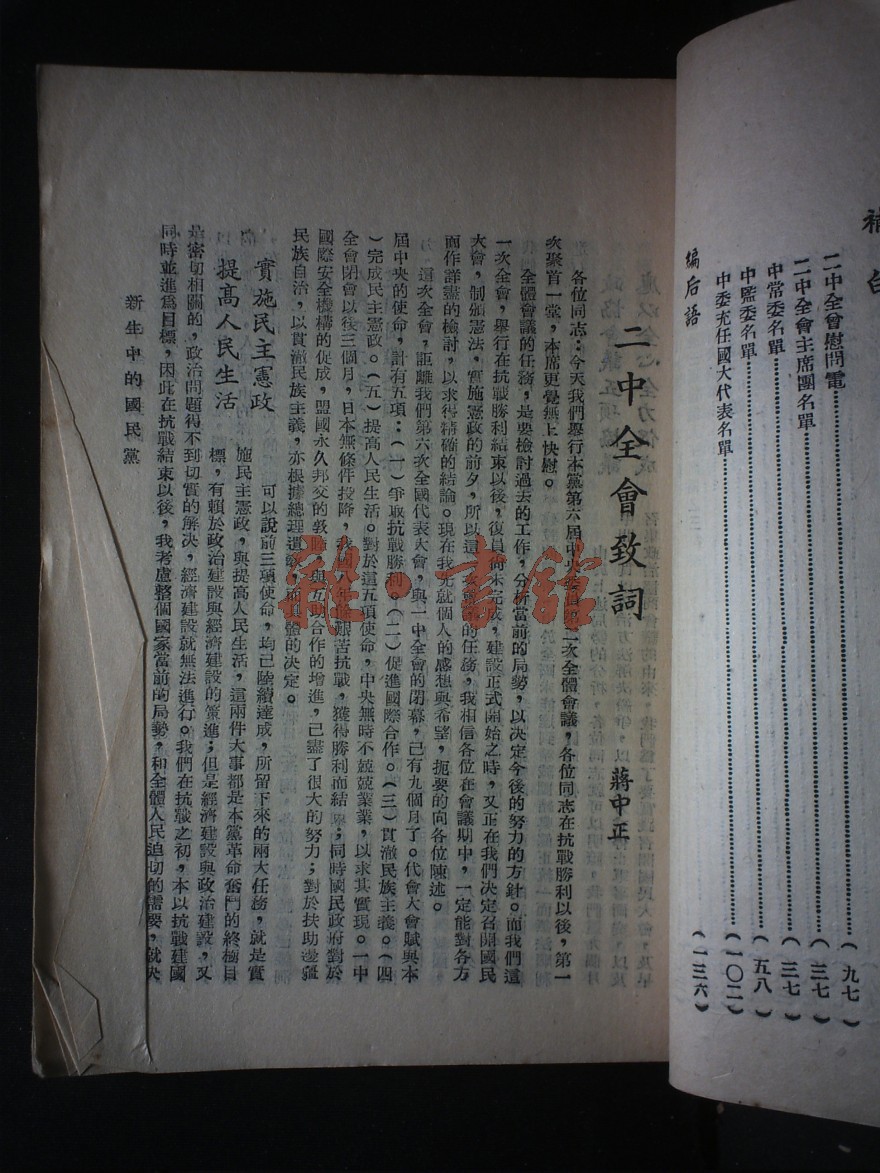 補白
二中全會慰問電………(九七)
二中全會主席團名單………(三七)
中常委名單………(三七)
中監委名單………(五八)
中委充任國大代表名單………(一〇二)
編后語………(一三六)
二中全會致詞
蔣中正
各位同志:今天我們舉行本黨第六屆中央委員第二次全體會議,各位同志在抗戰勝利以後,第一
次聚首一堂,本席更覺無上快慰。
全體會議的任務,是要檢討過去的工作,分析當前的局勢,以決定今後的努力的方針。而我們這
一次全會,舉行在抗戰勝利結束以後,復員尚未完成,建設正式開始之時,又正在我們決定召開國民
大會,制頒憲法,實施憲政的前夕,所以這一次會議的任務,我相信各位在會議期中,一定能對各方
面作詳盡的檢討,以求得精確的結論。現在我先就個人的感想與希望,扼要的向各位陳述。
這次全會,距離我們第六次全國代表大會,與一中全會的閉幕,已有九個月了。代會大會賦與本
屆中央的使命,計有五項:(一)爭取抗戰勝利。(二)促進國際合作。(三)貫澈民族主義。(四
)完成民主憲政。(五)提高人民生活。對於這五項使命,中央無時不兢兢業業,以求其實現。一中
全會閉會以後三個月,日本無條件投降,我國八年餘艱苦抗戰,獲得勝利而結束;同時國民政府對於
國際安全機構的促成,盟國永久邦交的敦睦,與互助合作的增進,已盡了很大的努力;對於扶助邊疆
民族自治,以貫澈民族主義,亦根據總理遺教,而具體的決定。
實施民主憲政
提高人民生活
可以說前三項使命,均已陸續達成,所留下來的兩大任務,就是實
施民主憲政,與提高人民生活,這兩件大事都是本黨革命奮鬥的終極目
標,有賴於政治建設與經濟建設的策進;但是經濟建設與政治建設,又
是密切相關的,政治問題得不到切實的解決,經濟建設就無法進行。我們在抗戰之初,本以抗戰建國
同時並進為目標,因此在抗戰結束以後,我考慮整個國家當前的局勢,和全體人民迫切的需要,就決
新生中的國民黨
雜·書館